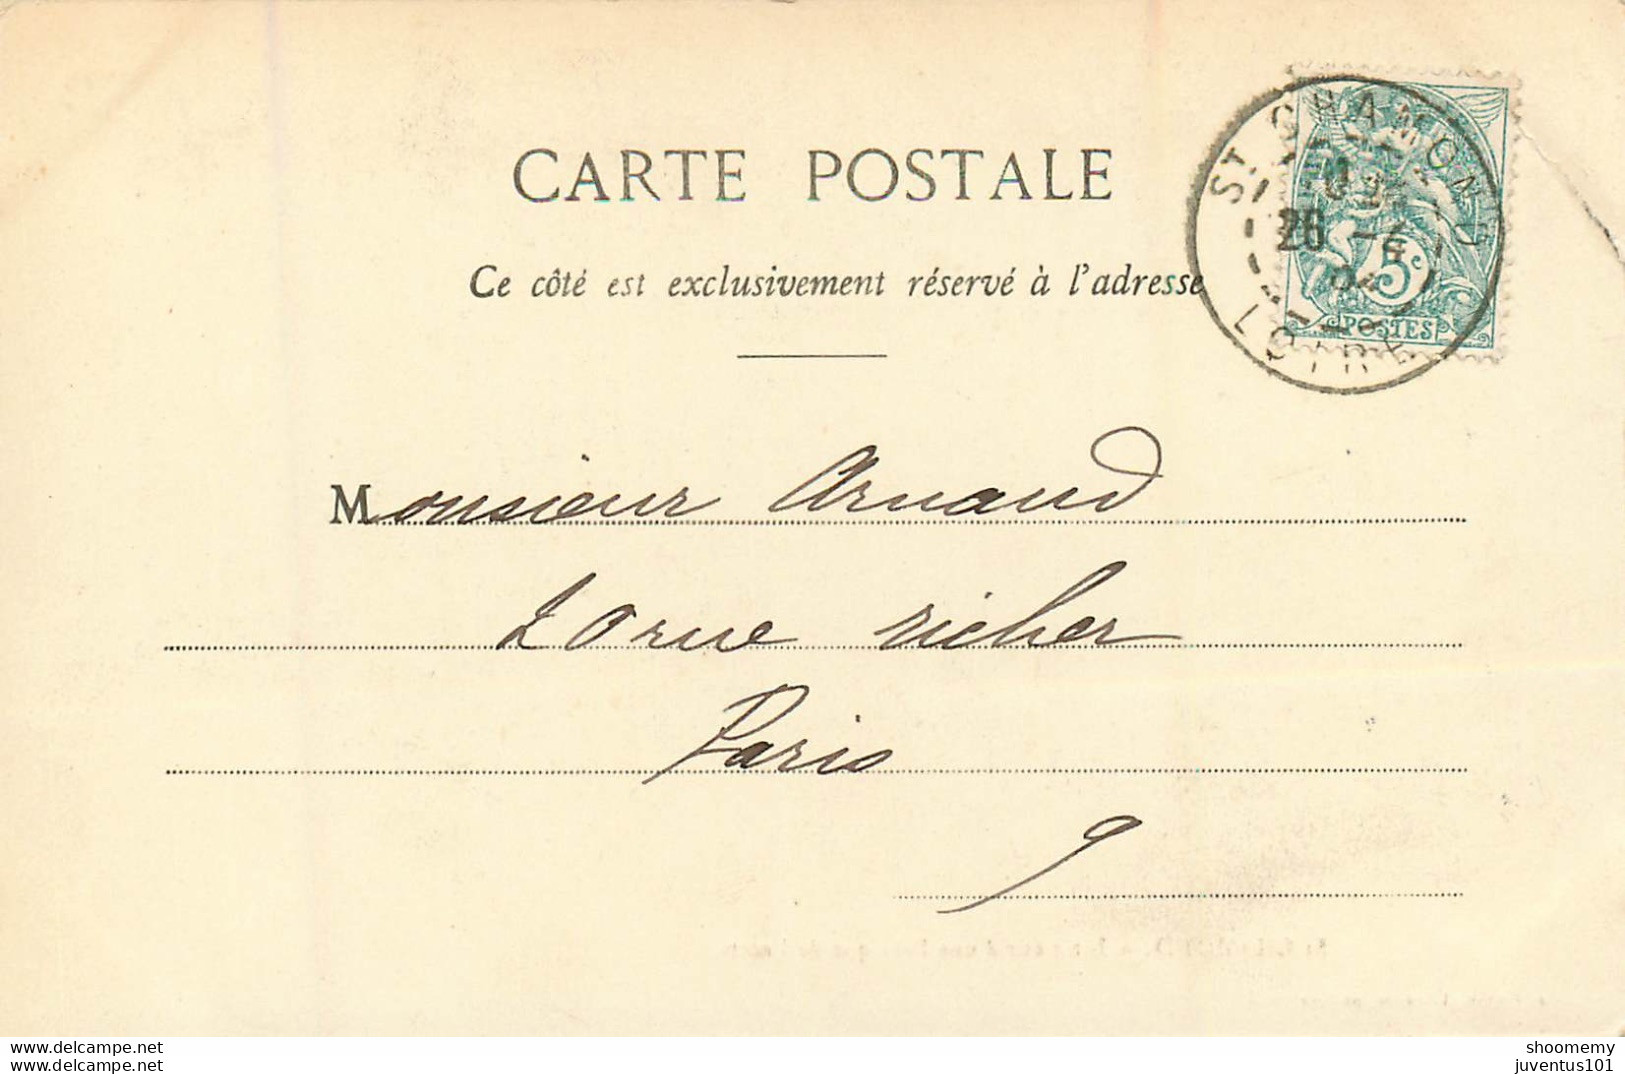 CARTE POSTALE
Ce côté est exclusivement réservé à l'adresse
ST CHAMOND
26
04
LOIRE
5c
POSTES
Monsieur Arnaud
20 rue Richer
Paris
9
www.delcampe.net
shoomemy
juventus101